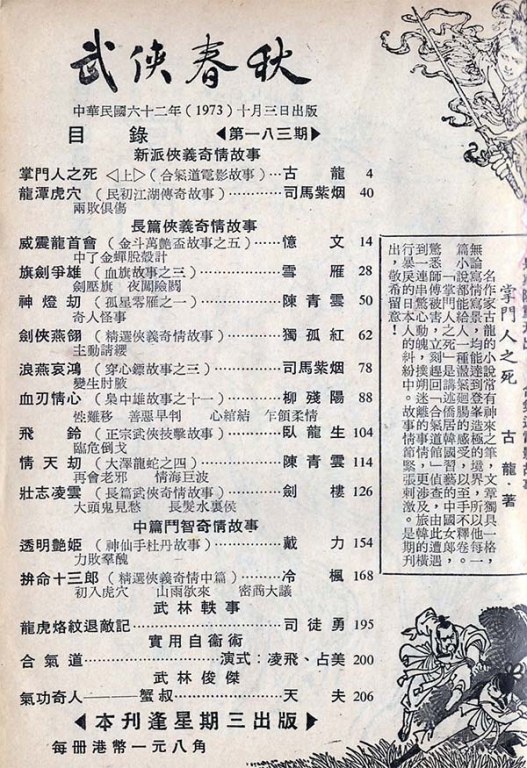 武俠春秋
中華民國六十二年(1973)十月三日出版
目錄 ◀第一八三期▶
新派俠義奇情故事
掌門人之死 ◁上▷(合氣道電影故事)…古龍 4
龍潭虎穴 (民初江湖傳奇故事)…………司馬紫烟 40
兩敗俱傷
長篇俠義奇情故事
威震龍首會 (金斗萬艷盃故事之五)……憶文 14
中了金蟬脫殼計
旗劍爭雄 (血旗故事之三)………………雪雁 28
劍壓旗 夜闖險關
神燈刧 (孤星零雁之一)…………………陳青雲 50
奇人怪事
劍俠燕翎 (精選俠義奇情故事)…………獨孤紅 62
主動請纓
浪燕哀鴻 (穿心鏢故事之三)……………司馬紫烟 78
變生肘腋
血刃情心 (梟中雄故事之十一)…………柳殘陽 88
性難移 善惡早判 心綰結 乍領柔情
飛鈴 (正宗武俠技擊故事)………………臥龍生 104
臨危倒戈
情天刧 (大澤龍蛇之四)…………………陳青雲 114
再會老邪 情海巨波
壯志凌雲 (長篇武俠奇情故事)…………劍樓 126
大頭鬼見愁 長髮水裏侯
中篇鬥智奇情故事
透明艷姫 (神仙手杜丹故事)……………戴力 154
力敗羣醜
拚命十三郎 (精選俠義奇情中篇)………冷楓 168
初入虎穴 山雨欲來 密商大議
武林軼事
龍虎烙紋退敵記…………………………司徒勇 195
實用自衞術
合氣道……………………演式:凌飛、占美 200
武林俊傑
氣功奇人———蟹叔……………………天夫 206
◀本刊逢星期三出版▶
每册港幣一元八角
掌門人之死 古龍·著
名作家古龍的小說常有神來之筆,文章獨具一格,
無論寫情寫景,均能達到登峯造極的境界,所以他每一
篇小說都能給人一種盪氣迴腸的感受,以至手不釋卷。
「掌門人之死」是講述僑居韓國習藝的中國女郎,
驚悉師傅被害,立刻趕回合氣道館一偵查,由此遭遇
到一連串驚心動魄,撲朔迷離的事情,更涉及旅韓橫
行暴戾的日本人的糾紛中。故事情節緊張刺激。是期刊
出,敬希留意!